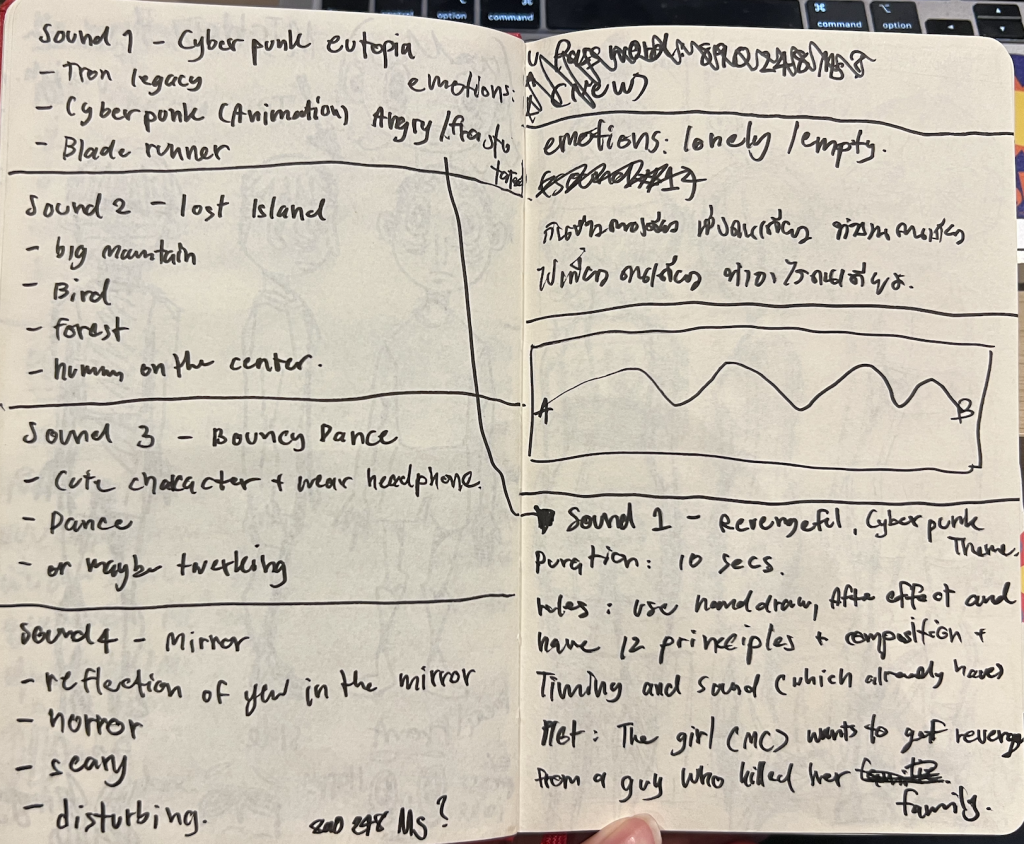 Sound 1 - Cyberpunk eutopia
- Tron legacy
- Cyberpunk (Animation)
- Blade runner
emotions:
Angry /
Sound 2 - lost Island
- big mauntain
- Bird
- forest
- human on the center.
Sound 3 - Bouncy Dance
- Cute character + wear headphone.
- Dance
- or maybe twerking
Sound 4 - Mirror
- reflection of you in the mirror
- horror
- scary
- disturbing.
Ms?
(New)
emotions: lonely /empty.
A B
Sound 1 - Revengeful, Cyberpunk
Theme.
Duration: 10 secs.
rules: use handdraw, After effect and
have 12 principles + composition +
Timing and sound (which already have)
The girl (MC) wants to get revenge
from a guy who killed her
family.
command
option
command
command
option